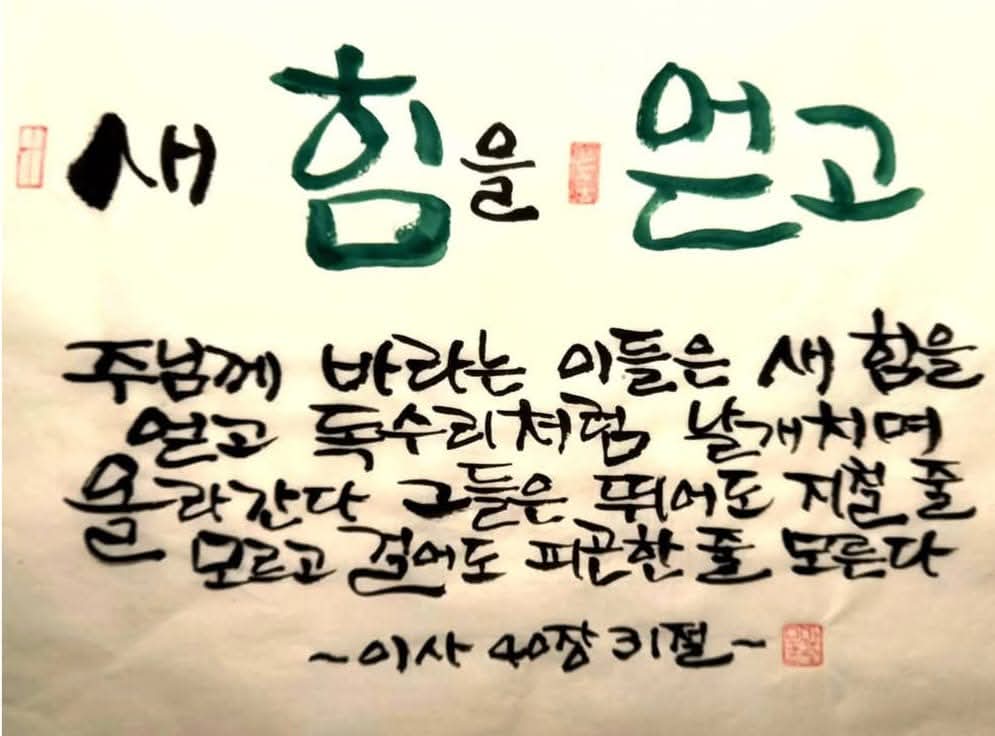 새 힘을 얻고
주님께 바라는 이들은 새 힘을
얻고 독수리처럼 날개치며
올라간다 그들은 뛰어도 지칠 줄
모르고 걸어도 피곤한 줄 모른다
~이사 40장 31절~